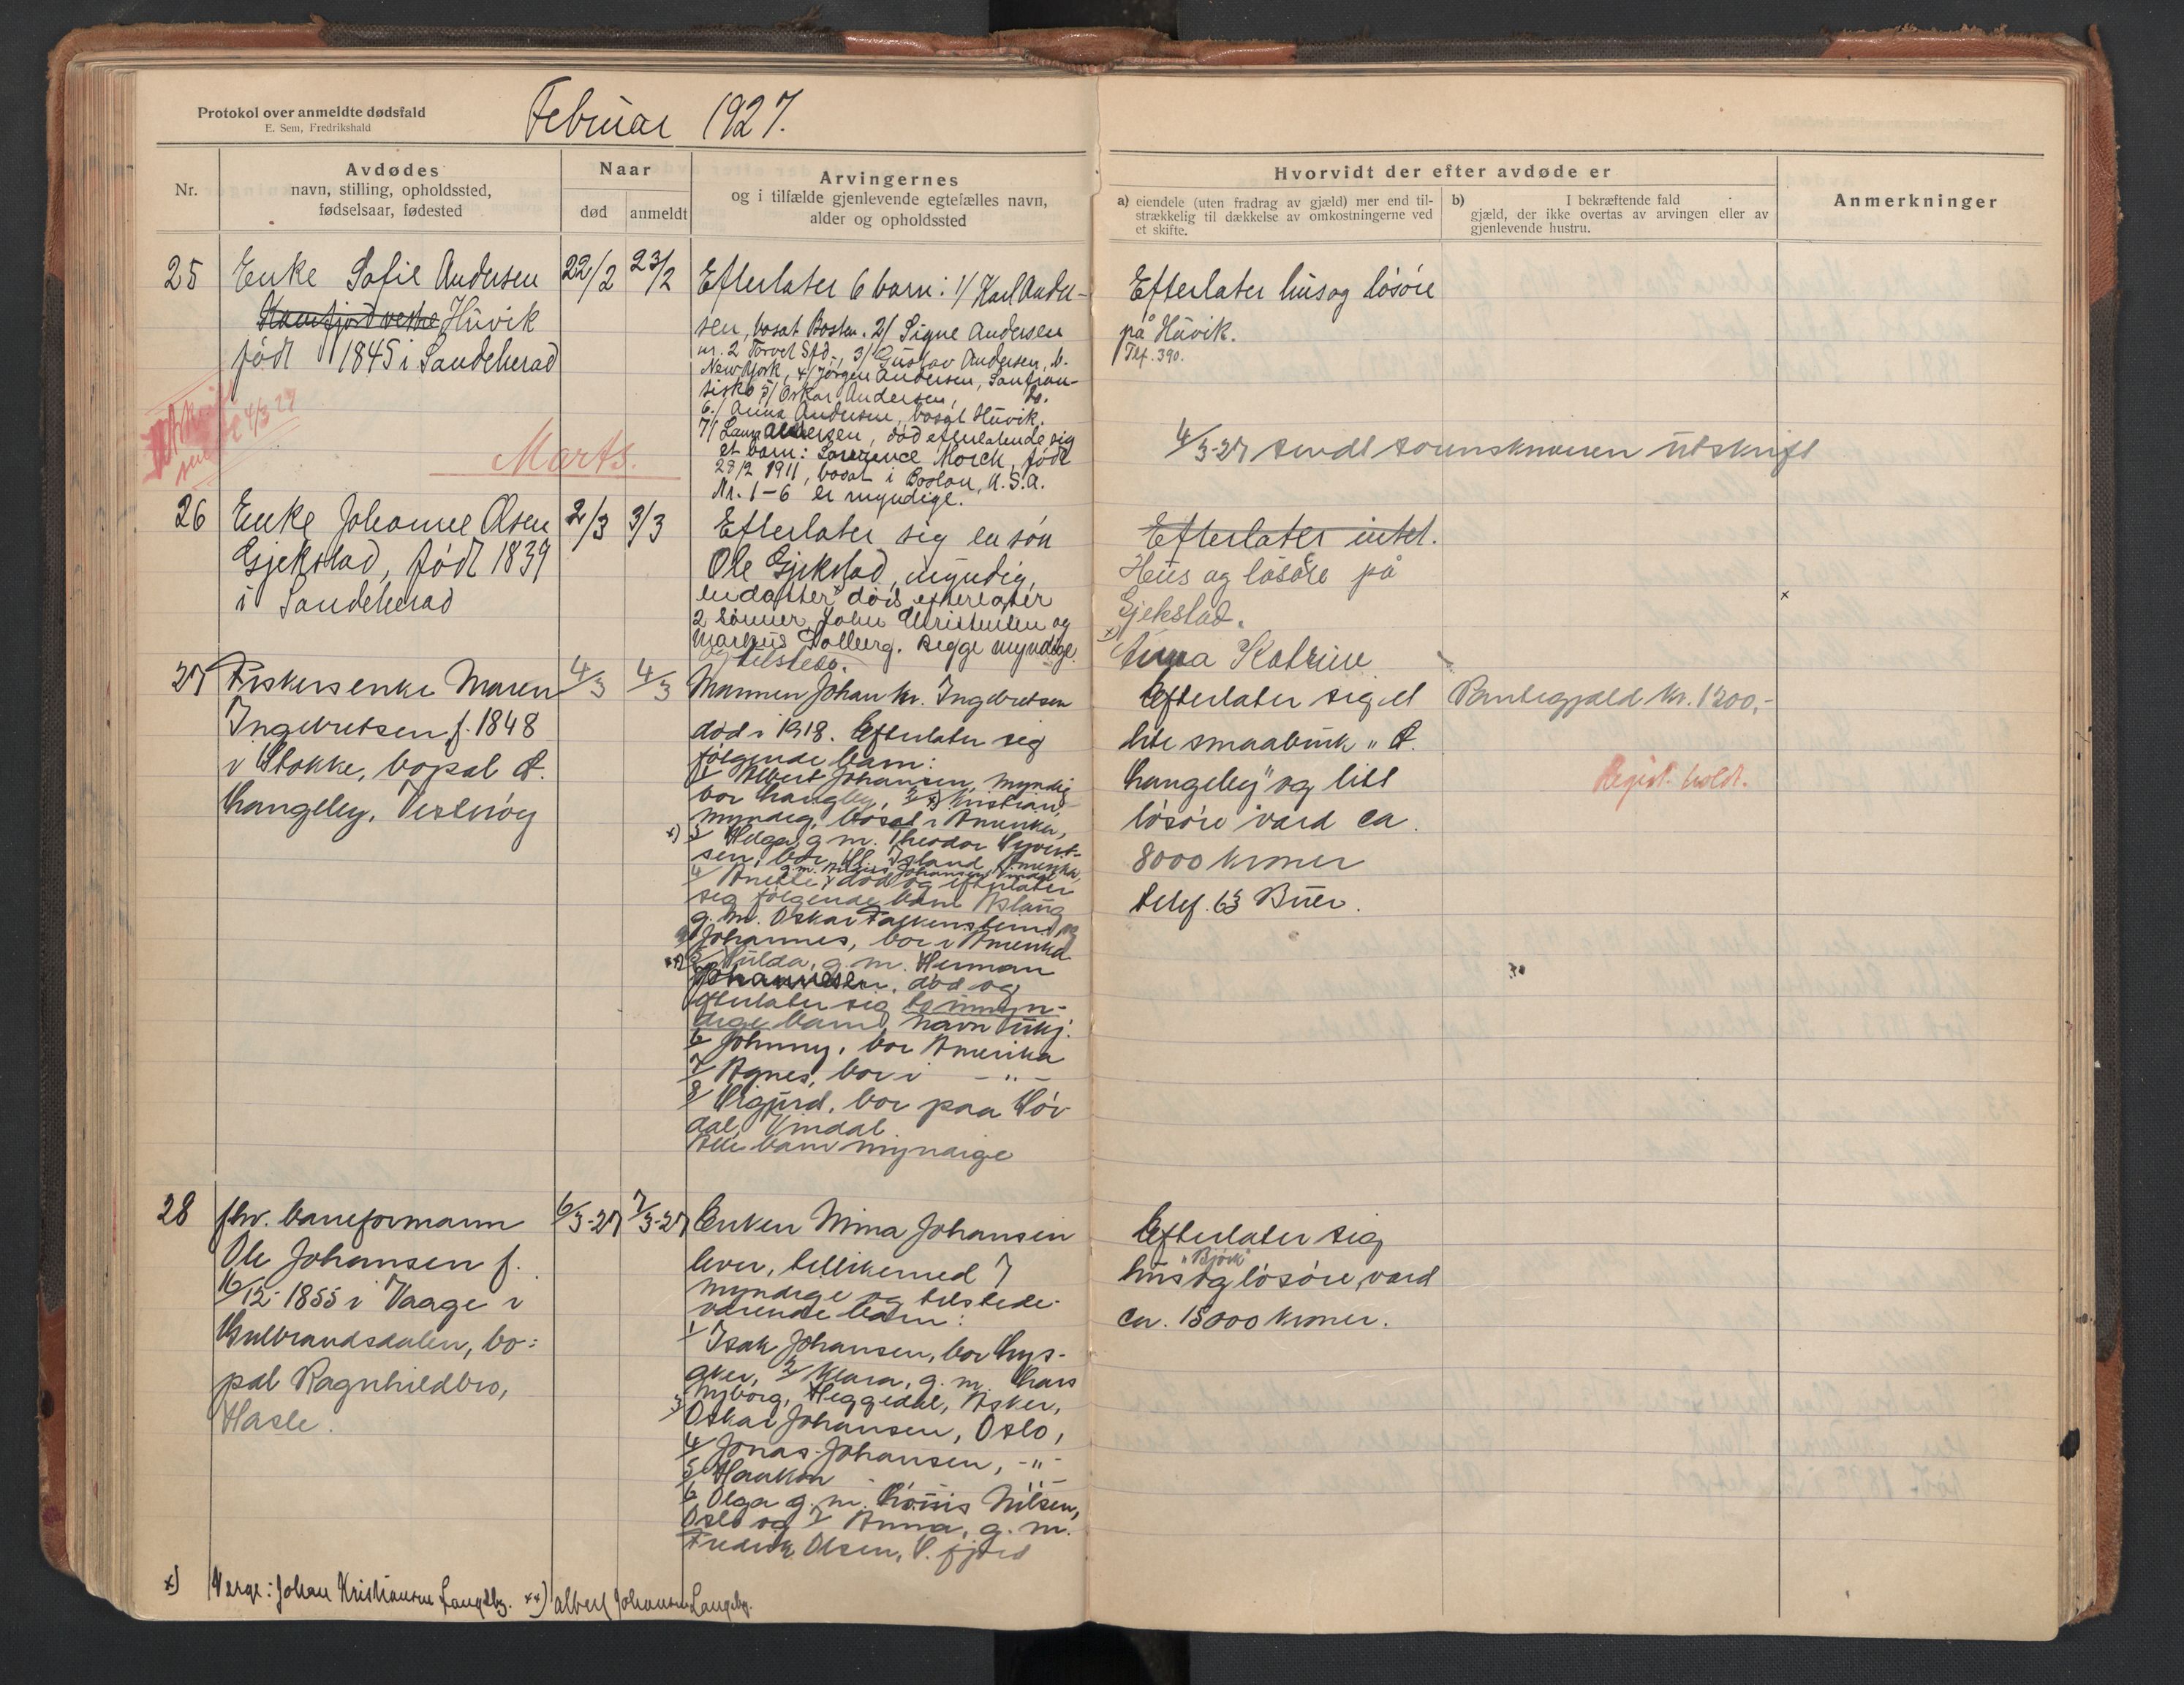 Protokol over anmeldte dødsfald
E. Sem, Fredrikshald
Februar 1927.
Nr.
Avdødes
navn, stilling, opholdssted,
fødselsaar, fødested
Naar
død
anmeldt
Arvingernes
og i tilfælde gjenlevende egtefælles navn,
alder og opholdssted
Hvorvidt der efter avdøde er
a) eiendele (uten fradrag av gjæld) mer end til-
strækkelig til dækkelse av omkostningerne ved
et skifte.
b) I bekræftende fald
gjæld, der ikke overtas av arvingen eller av
gjenlevende hustru.
Anmerkninger
25
Enke Sofie Andersen
Huvik
født 1845 i Sandeherad
22/2
23/2
Efterlater 6 barn: 1/ Karl Ander-
sen, bosat Boston. 2/ Signe Andersen
nr. 2 Torvet Sfd., 3/ Gustav Andersen, b.
New York, 4/ Jørgen Andersen, Sanfran-
sisko 5/ Oskar Andersen, do.
6./ Anna Andersen, bosat Huvik.
7/ Laura Andersen, død efterlatende sig
et barn: Lawrence Morck, født
28/2 1911, bosat i Boston, U.S.A.
Nr. 1-6 er myndige.
Efterlater hus og løsøre
på Huvik.
Tlf. 390.
4/3-27 sendt sorenskriveren utskrift
4/3 27
Marts.
26
Enke Johanne Olsen
Gjekstad, født 1839
i Sandeherad
2/3
3/3
Efterlater sig en søn
Ole Gjekstad, myndig,
en datter død, efterlater
2 sønner John Christensen og
Markus Solberg. Begge myndige
og tilstede.
Efterlater intet.
Hus og løsøre på
Gjekstad.
x) Anna Katrine
x
27
Fiskersenke Maren
Ingebretsen f. 1848
i Stokke, bopæl Ø.
Langeby, Vesterøy
4/3
4/3
Mannen Johan Kr. Ingebretsen
død i 1918. Efterlater sig
følgende barn:
1/ Albert Johansen, myndig
bor Langby, 2/ x) Kristian,
myndig, bosat i Amerika,
x) 3/ Helga, g.m. Theodor Syvert-
sen, bor St. Island, Amerika,
4/ Anette, død og efterlater
sig følgende barn Aslaug
g.m. Oskar Falkensten, og
Johannes, bor i Amerika
xx) 5/ Hulda, g.m. Herman
Johannesen, død og
efterlater sig to umyn-
dige barn, navn ukj.
6/ Johnny, bor Amerika
7/ Agnes, bor i -"-
8/ Sigurd, bor paa Sør
dal, Vindal
Alle barn myndige
Efterlater sig et
lite smaabruk "Ø.
Langeby" og litt
løsøre værd ca.
8000 kroner
Telef. 63 Buer.
Pantegjæld kr. 1200,-
Regist. holdt.
28
fhv. baneformann
Ole Johansen f.
16/12-1855 i Vaage i
Gulbrandsdalen, bo-
pæl Ragnhildbro,
Hasle.
6/3-27
7/3-27
Enken Mina Johansen
lever, tillikemed 7
myndige og tilstede-
værende barn:
1/ Isak Johansen, bor Lys-
aker, 2/ Klara, g.m. Lars
Nyborg, Heggedal, Asker,
3/ Oskar Johansen, Oslo,
4/ Jonas Johansen, -"-
5/ Haakon -"-
6/ Olga g.m. Louis Nilsen,
Oslo og 7/ Anna, g.m.
Fredrik Olsen, S.fjord
Efterlater sig
"Bjørk"
hus og løsøre, værd
ca. 15000 kroner.
x) Verge: Johan Kristiansen Langeby. xx) Albert Johansen Langeby.